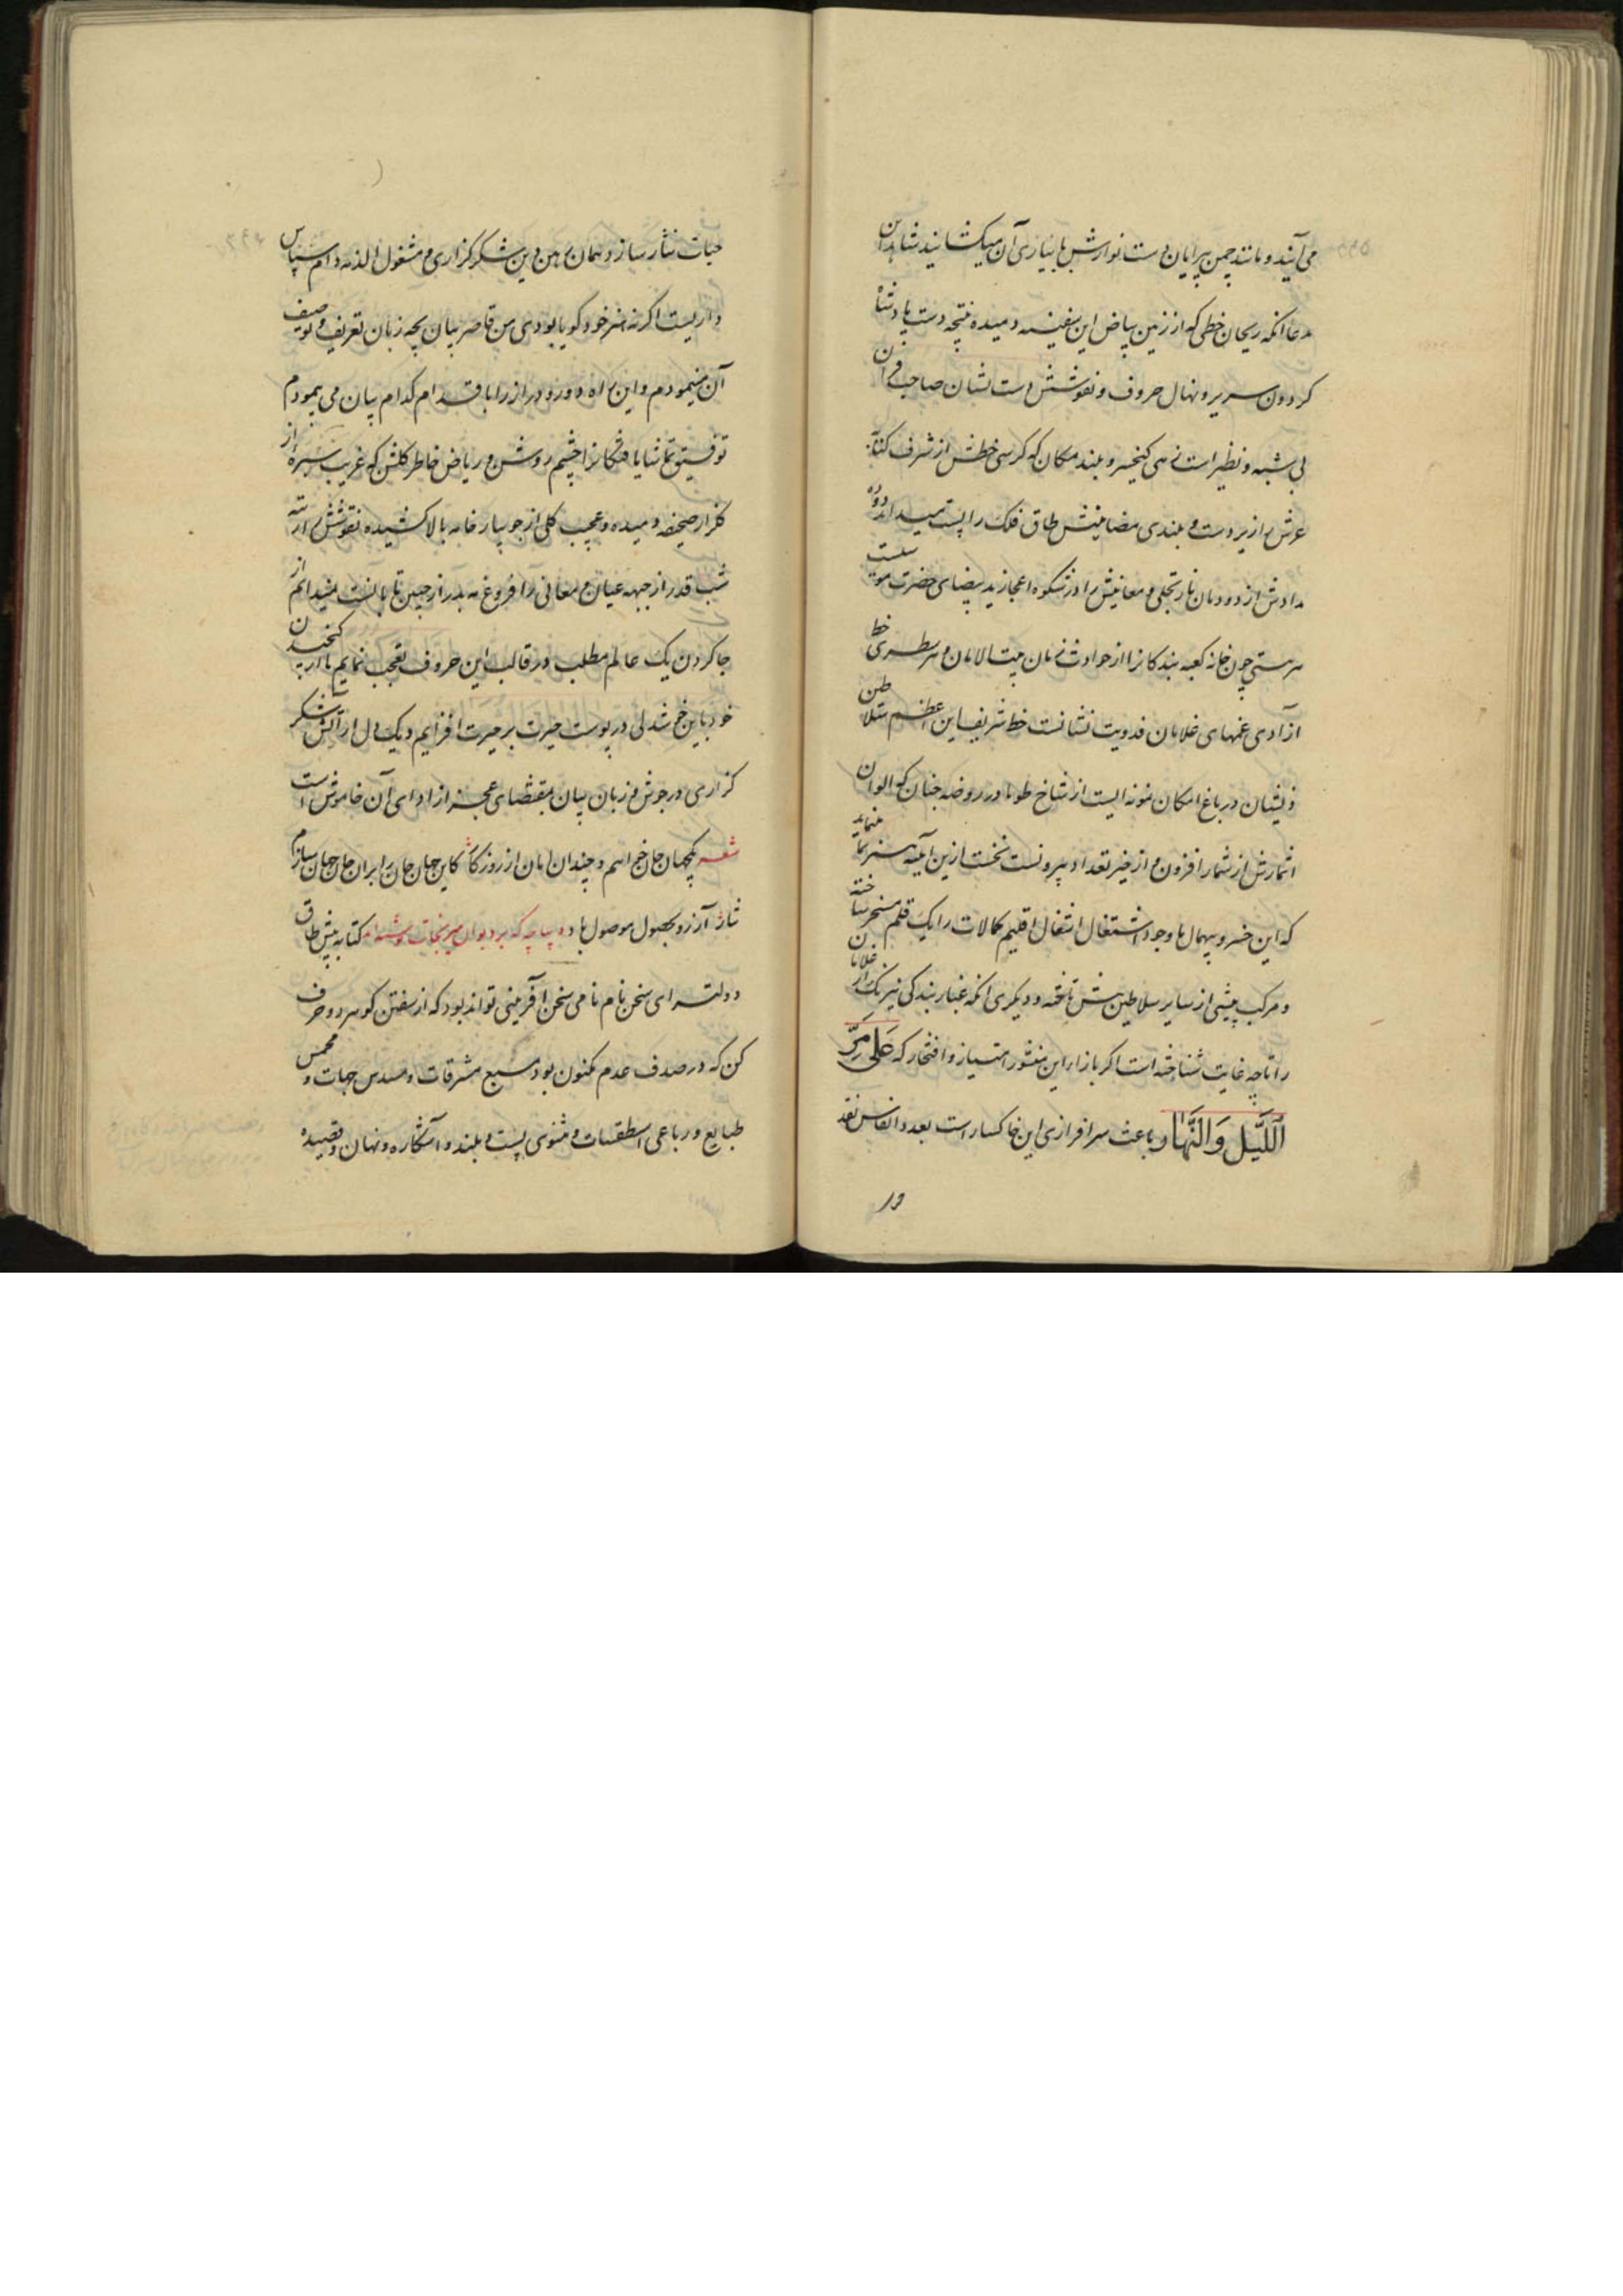 می آیند و مانند چمن پیرایان دست نوازش بآبیاری آن میکشایند شاهد این
مدعا آنکه ریحان خطی که از زمین بیاض این سفینه دمیده نتیجه دست پادشاه
کردون سریر و نهال حروف و نقوشش دست نشان صاحب قران
بی شبه و نظیر است زهی کیخسرو بلند مکان که کرسی خطش از شرف کتابه
عرش را زیر دست و بلندی مضامینش طاق فلک را پست میداند دوده
مدادش از دودمان نار تجلی و معانیش را در شکوه اعجاز ید بیضای حضرت موسیست
هر ستی چون خانه کعبه بندکانرا از حوادث زمان بیت الامان و هر سطری خط
آزادی غمهای غلامان فدویت نشانست خط شریف این اعظم سلاطین
ذیشان در باغ امکان نمونه ایست از شاخ طوبا در روضه جنان که الوان
اثمارش از شمار افزون و از حیز تعداد بیرونست نخست ازین آینه هنر نما مینماید
که این خسرو بیهمال با وجود اشتغال اشغال اقلیم کمالات را یک قلم مسخر ساخته
و مرکب پیشی از سایر سلاطین پیش تاخته و دیکری آنکه غبار بندکی نیرنک از غلامان
را تا چه غایت شناخته است اکر بازاء این منشور امتیاز و افتخار که عَلی مَرِّ
اللَّیلِ وَالنَّهار باعث سرافرازی این خاکسار است بعدد انفاس نقد
حیات نثار سازد همان رهین دین شکرکزاری و مشغول الذمه دام سپاس
داریست اکر نه هنر خود کویا بودی من قاصر بیان بچه زبان تعریف و توصیف
آن مینمودم و این راه دور و دراز را با قدام کدام بیان می پیمودم
توفیق تماشا یافتکانرا چشم روشن و ریاض خاطر کلشن که غریب سبزه از
کلزار صحیفه دمیده و عجب کلی از جویبار خامه بالا کشیده نقوشش را رتبه
شب قدر از جبهه عیان و معانی را فروغ مه بدر از جبین تابانست نمیدانم از
جا کردن یک عالم مطلب در قالب این حروف تعجب نمایم یا از کنجیدن
خود باین خوشدلی در پوست حیرت بر حیرت افزایم و یک دل از آتش شکر
کزاری در جوش و زبان بیان بمقتضای عجز از ادای آن خاموش است
شعر یکجهان جان خواهم و چندان امان از روزکار کاین جهان جان برابران جان جهان سازم
نثار آرزو بحصول موصول باد دیباچه که بر دیوان میر نجات نوشته ام کتابه پیش طاق
دولتسرای سخن نام نامی سخن آفرینی تواند بود که از سفتن کوهر دو حرف
کن که در صدف عدم مکنون بود مسبع مشرقات و مسدس جهات و مخمس
طبایع و رباعی اسطقسات و مثنوی پست و بلند و آشکاره و نهان و قصیده